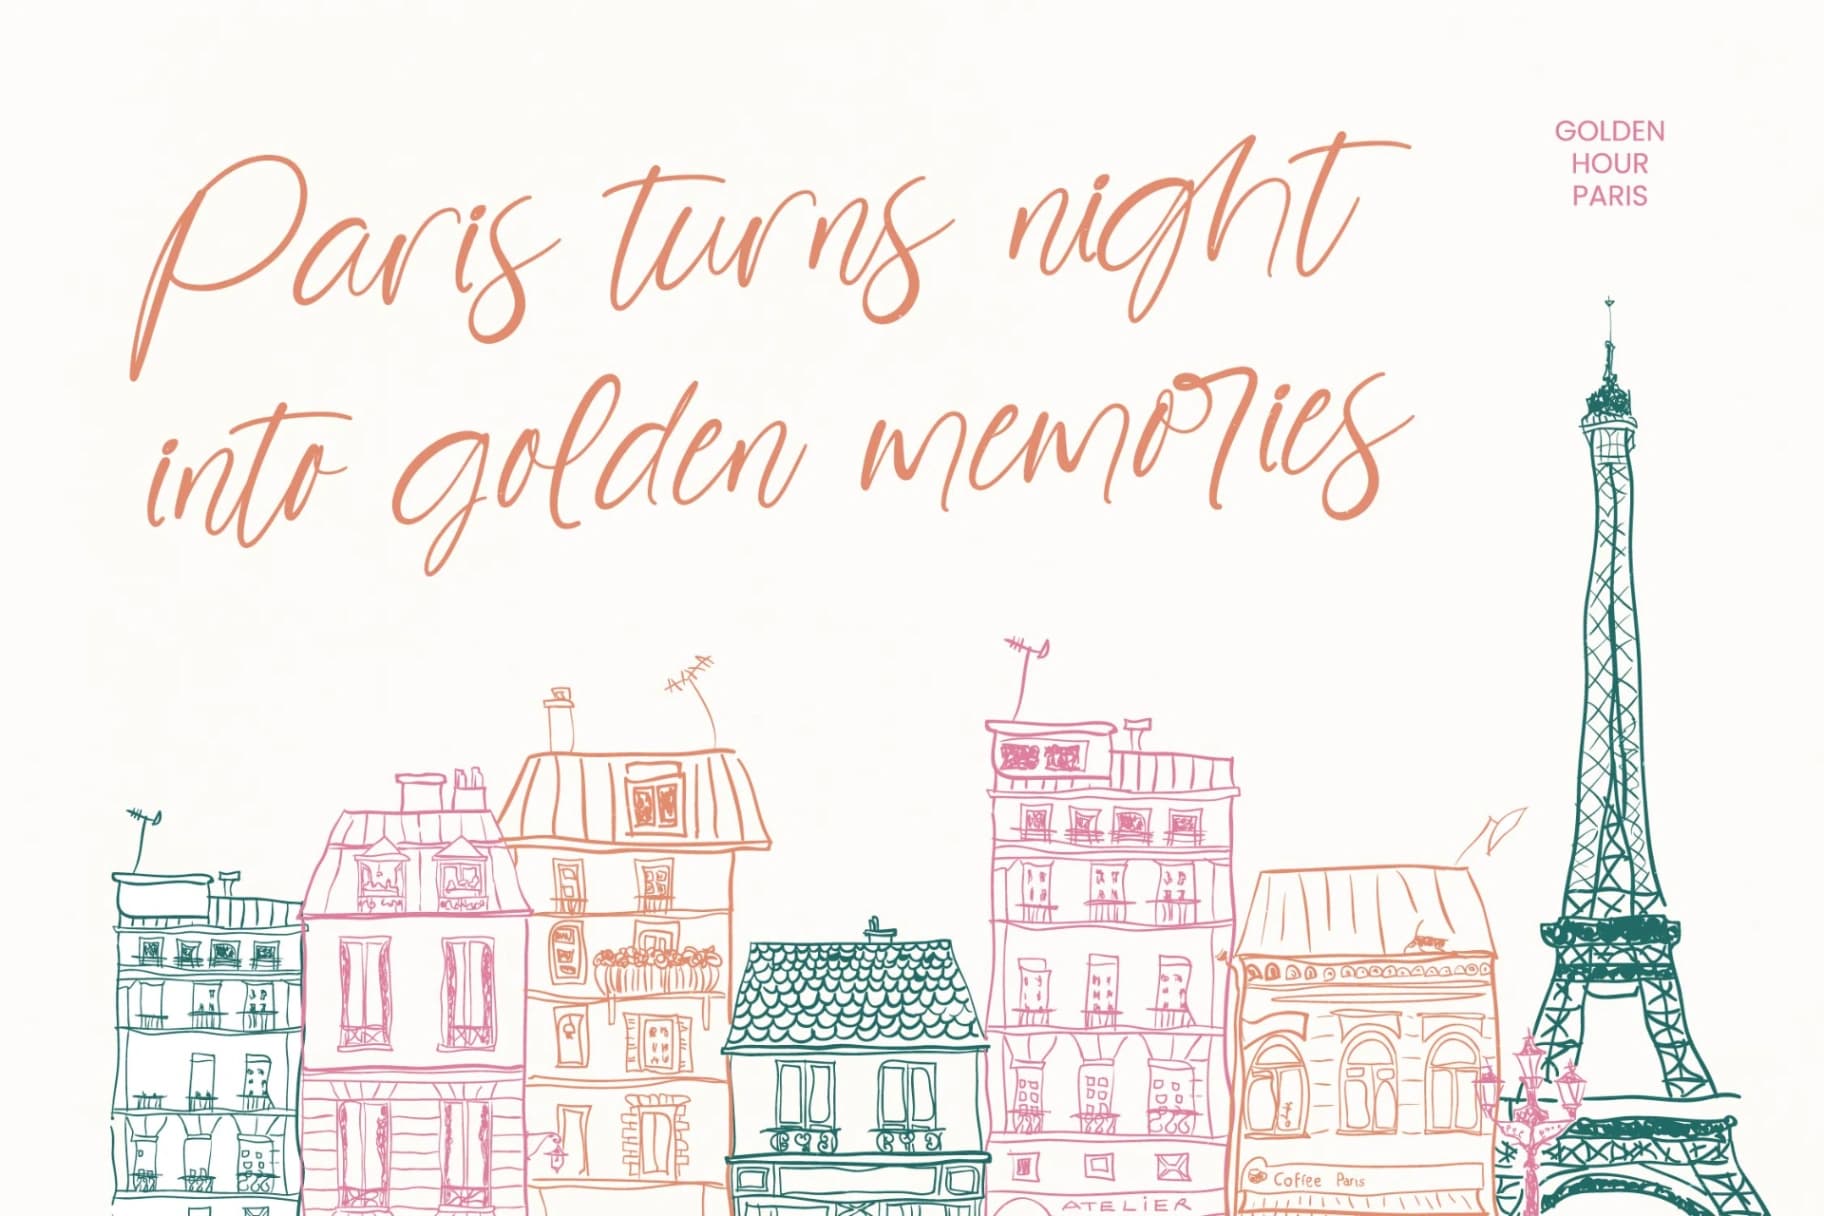 Paris turns night
into golden memories
GOLDEN
HOUR
PARIS
Coffee Paris
ATELIER